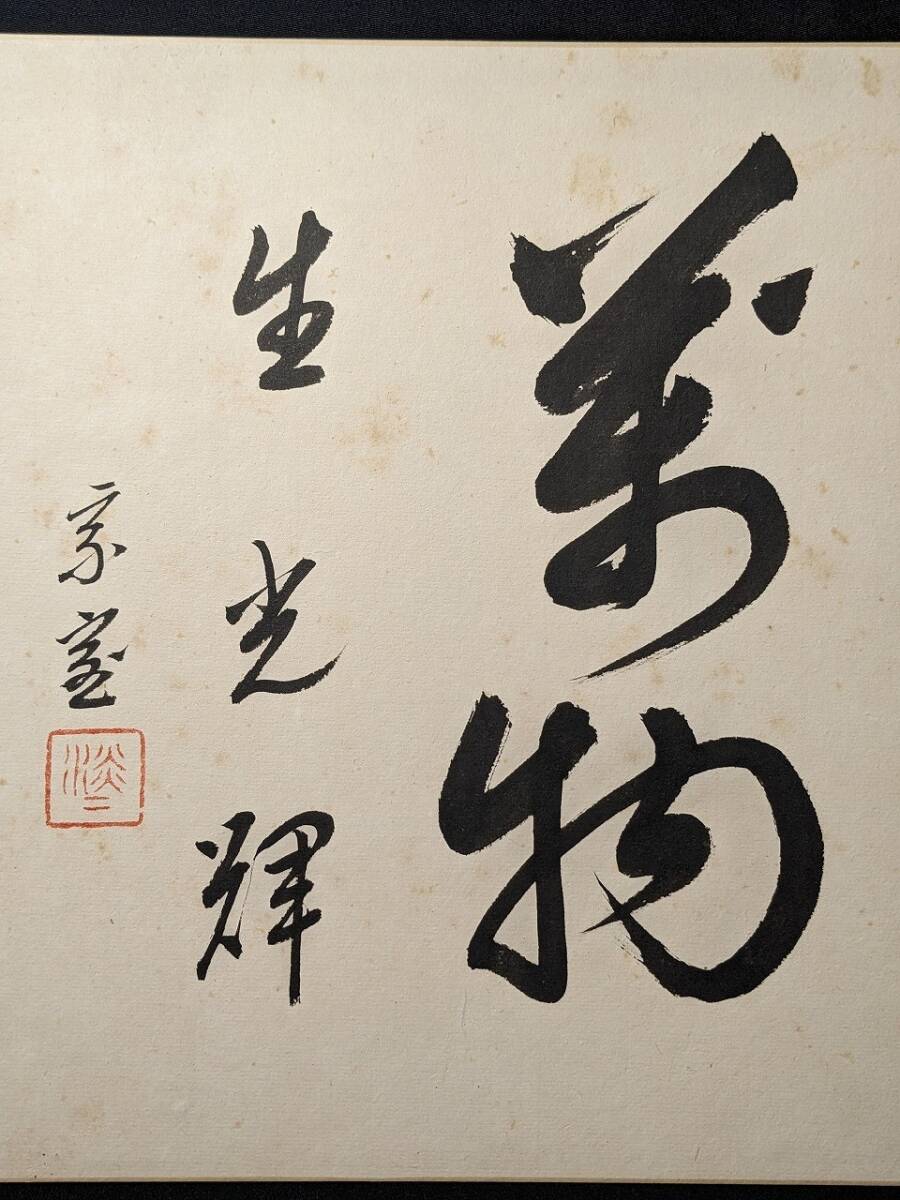 萬物
生光輝
宗室